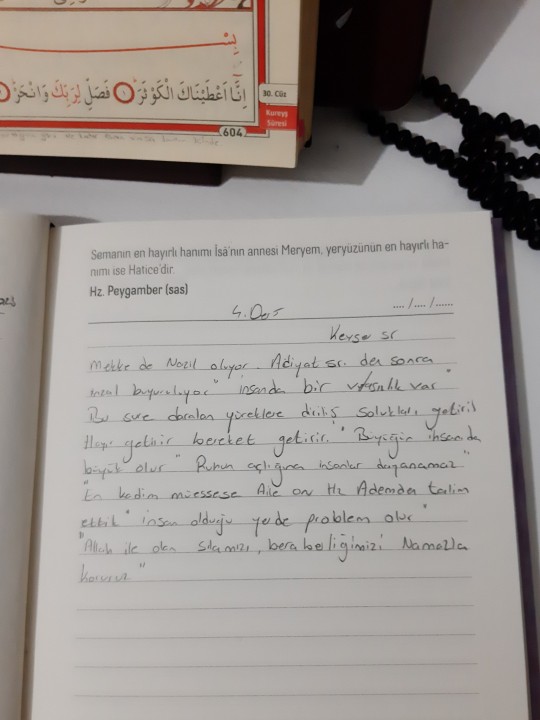 إِنَّا أَعْطَيْنَاكَ الْكَوْثَرَ ١ فَصَلِّ لِرَبِّكَ وَانْحَرْ
30. Cüz
Kureyş
Sûresi
604
Semanın en hayırlı hanımı Îsâ'nın annesi Meryem, yeryüzünün en hayırlı ha-
nımı ise Hatice'dir.
Hz. Peygamber (sas)
4. Ders
.... /.... /......
Kevser sr
Mekke de Nazil oluyor. Adiyat sr. den sonra
inzal buyuruluyor " insanda bir var "
Bu sure daralan yüreklere diriliş solukları getirir
Hayır getirir bereket getirir. " Büyüğün ihsanı da
büyük olur " Ruhun açlığına insanlar dayanamaz "
" En kadim müessese Aile onu Hz Ademden talim
ettik " insan olduğu yerde problem olur "
" Allah ile olan sılamızı, beraberliğimizi Namazla
koruruz "